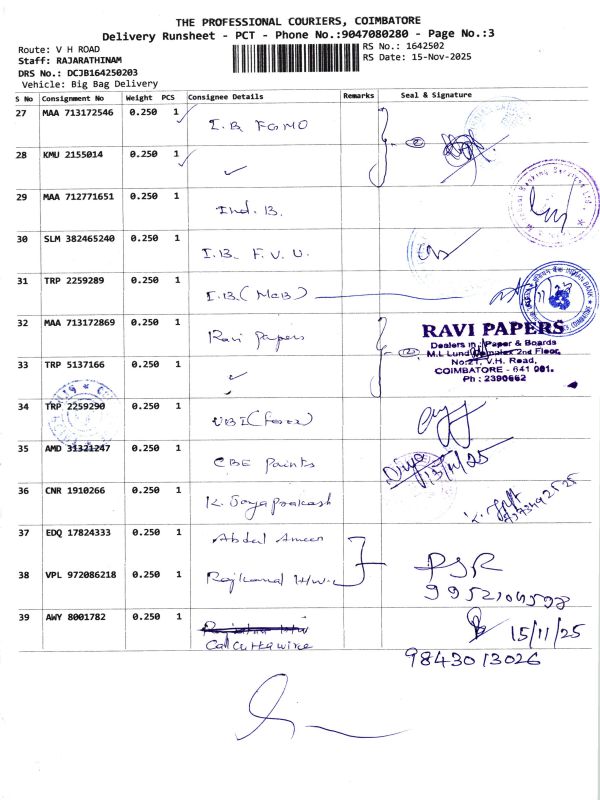 THE PROFESSIONAL COURIERS, COIMBATORE
Delivery Runsheet - PCT - Phone No.:9047080280 - Page No.:3
Route: V H ROAD
RS No.: 1642502
Staff: RAJARATHINAM
RS Date: 15-Nov-2025
DRS No.: DCJB164250203
Vehicle: Big Bag Delivery
S No Consignment No Weight PCS Consignee Details Remarks Seal & Signature
27 MAA 713172546 0.250 1 I.B. FGMO
28 KMU 2155014 0.250 1
29 MAA 712771651 0.250 1 Ind. B.
30 SLM 382465240 0.250 1 I.B. F.V.U.
31 TRP 2259289 0.250 1 I.B.(McB)
INDIAN BANK
32 MAA 713172869 0.250 1 Ravi papers
RAVI PAPERS
Dealers in : Paper & Boards
M.L Lund Complex 2nd Floor,
No:21, V.H. Road,
COIMBATORE - 641 001.
Ph : 2390662
33 TRP 5137166 0.250 1
34 TRP 2259290 0.250 1
35 AMD 31321247 0.250 1 CBE Paints
Divya 13/11/25
36 CNR 1910266 0.250 1 K. Jayaprakash
37 EDQ 17824333 0.250 1 Abdul Ameer
38 VPL 972086218 0.250 1 Rajkamal H/W.
PSR
39 AWY 8001782 0.250 1
15/11/25
Calcuttawire
9843013026